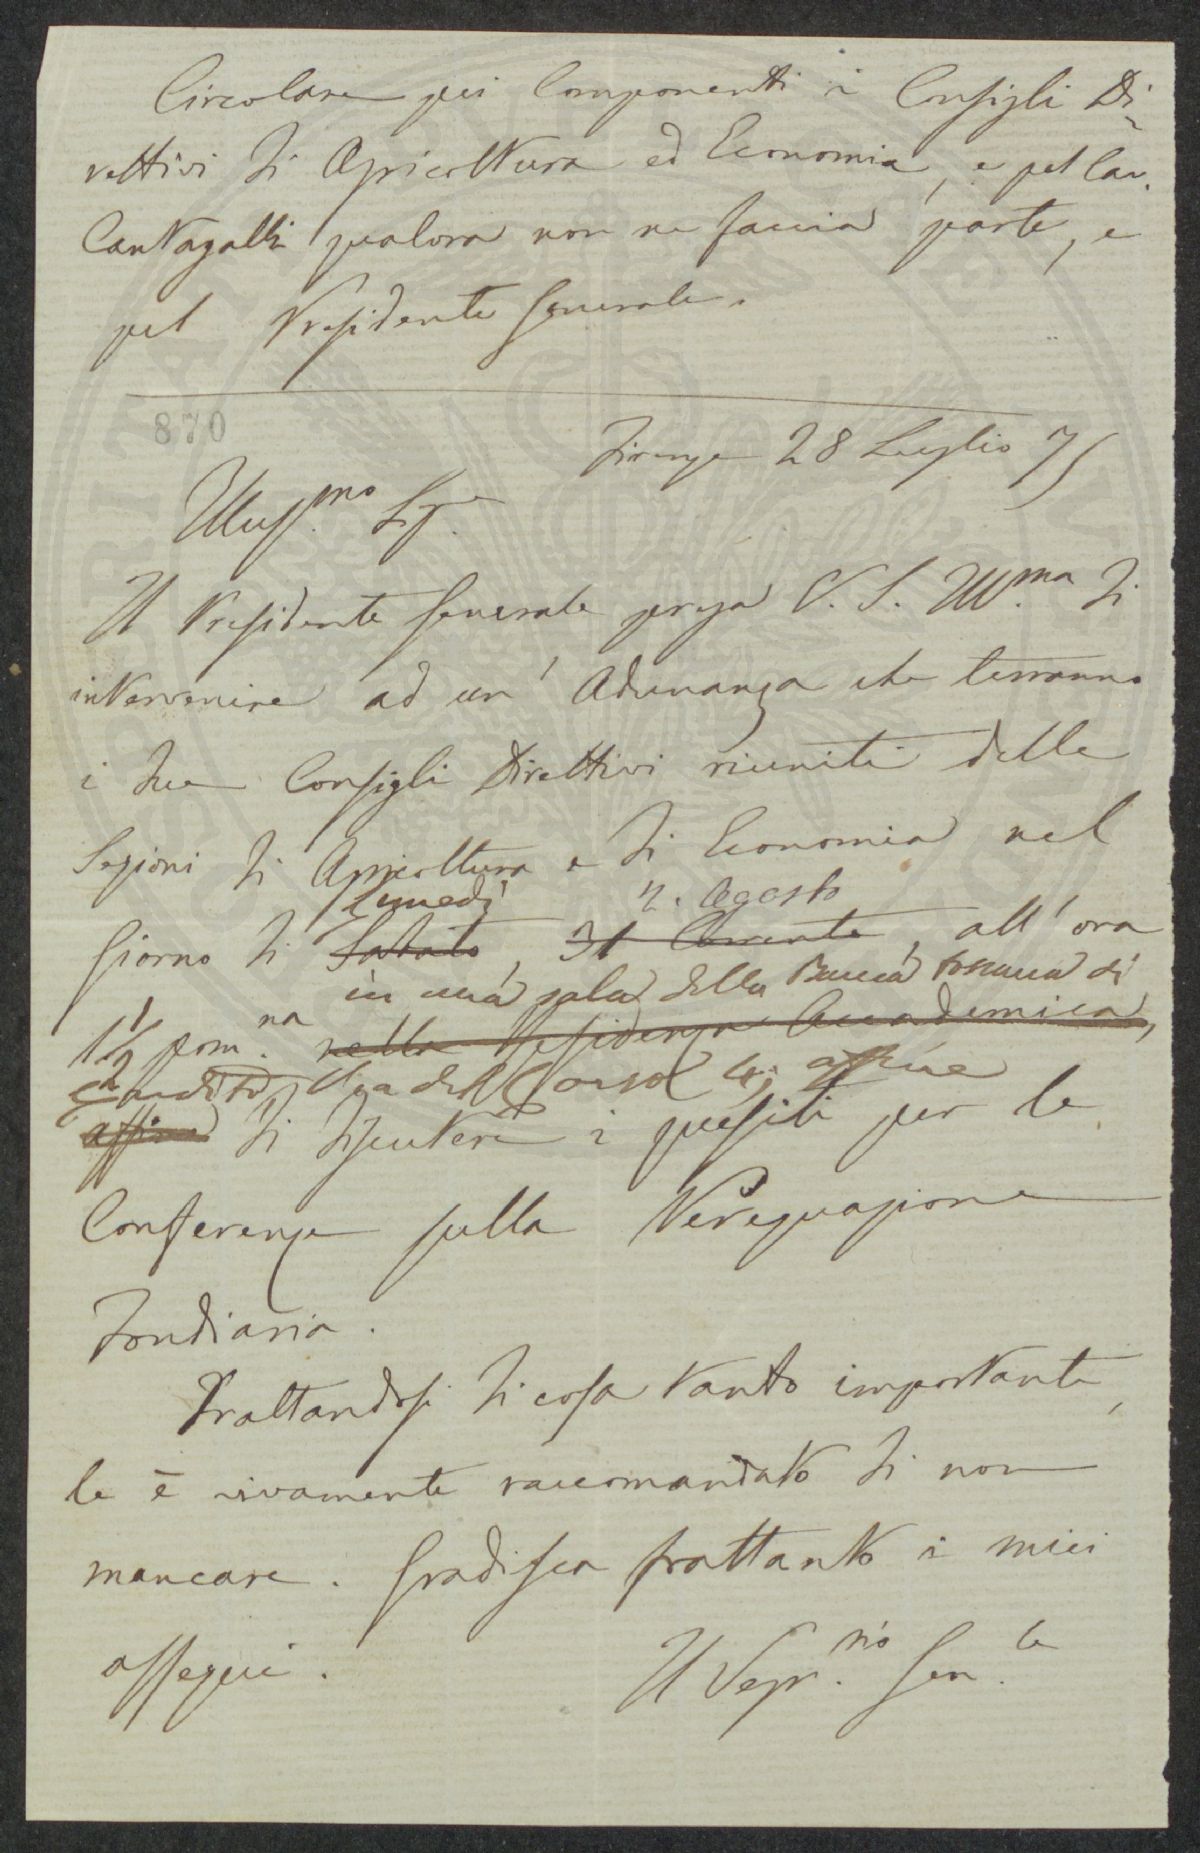 Circolare pei Componenti i Consigli Di-
rettivi di Agricoltura ed Economia, e pel Cav.
Cantagalli qualora non ne faccia parte, e
pel Presidente Generale.
870
Firenze 28 Luglio 75
Illus.mo Sig.e
Il Presidente Generale prega V. S. Ill.ma di
intervenire ad un' Adunanza che terranno
i due Consigli Direttivi riuniti delle
Sezioni di Agricoltura e di Economia nel
Lunedì 2. Agosto
Giorno di Sabato, 31 Corrente, all' ora
in una sala della Banca Toscana di
1 1/2 pom.na nella Residenza Accademica,
Credito, Via del Corso 4, affine
affine di discutere i quesiti per le
Conferenze sulla Perequazione
Fondiaria.
Trattandosi di cosa tanto importante,
le è vivamente raccomandato di non
mancare. Gradisca frattanto i miei
ossequi. Il Segr.rio Gen.le